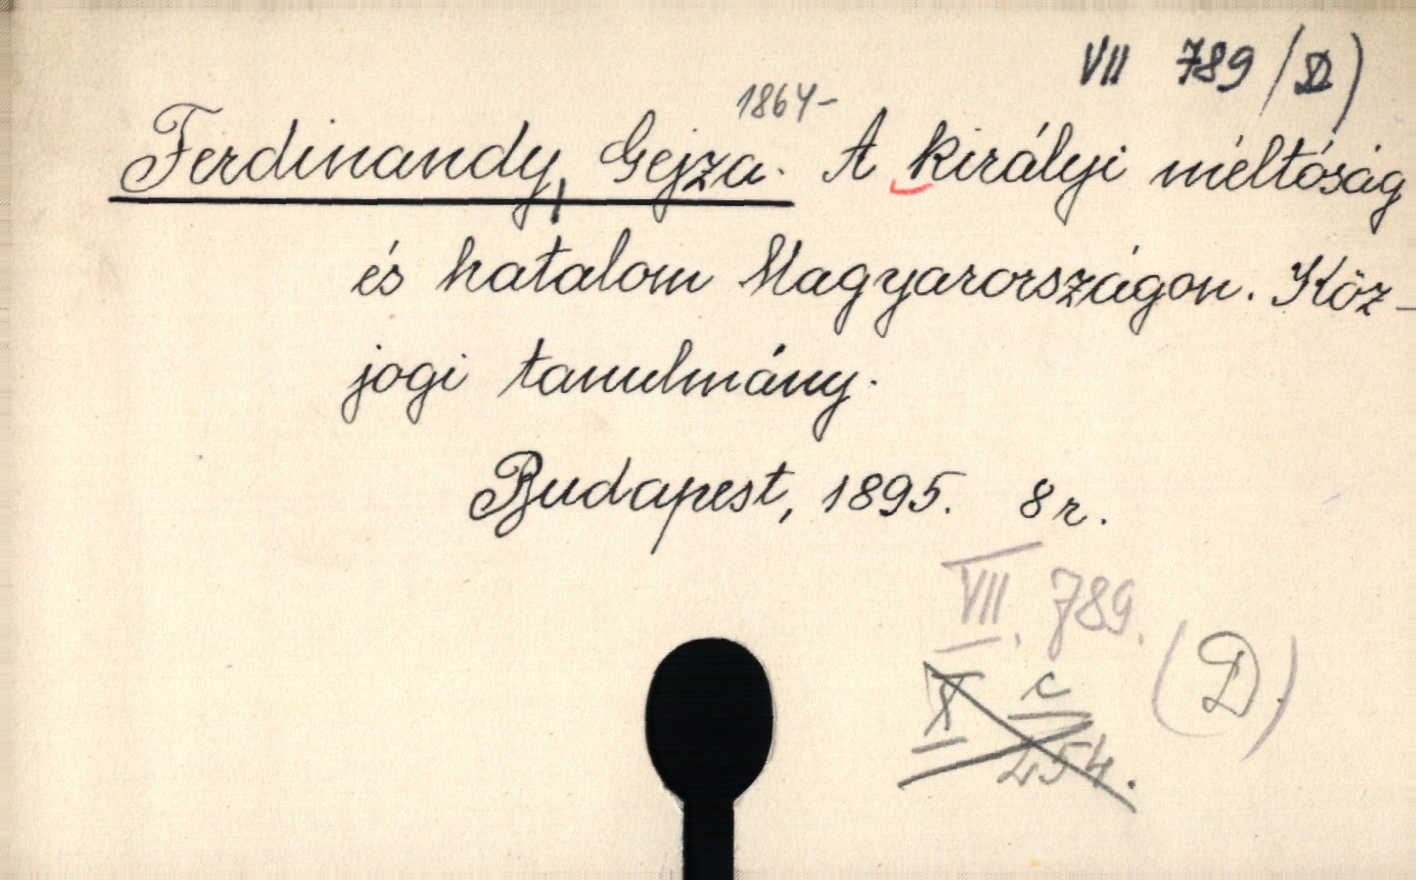 VII 789 /D)
1864-
Ferdinandy, Gejza. A királyi méltóság
és hatalom Magyarországon. Köz-
jogi tanulmány.
Budapest, 1895. 8r.
VII. 789.
(D.)
X c
254.